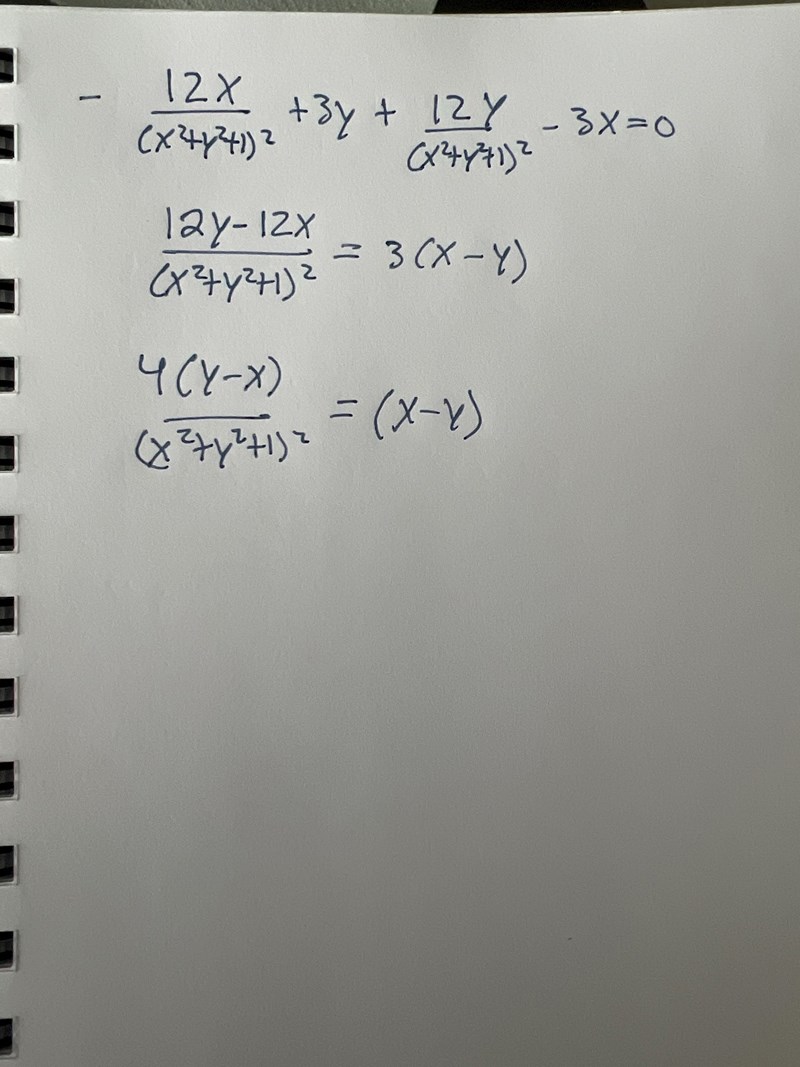 - 12X/(X²+Y²+1)² + 3y + 12Y/(X²+Y²+1)² - 3X = 0
12Y - 12X/(X²+Y²+1)² = 3(X - Y)
4(Y - X)/(X²+Y²+1)² = (X - Y)